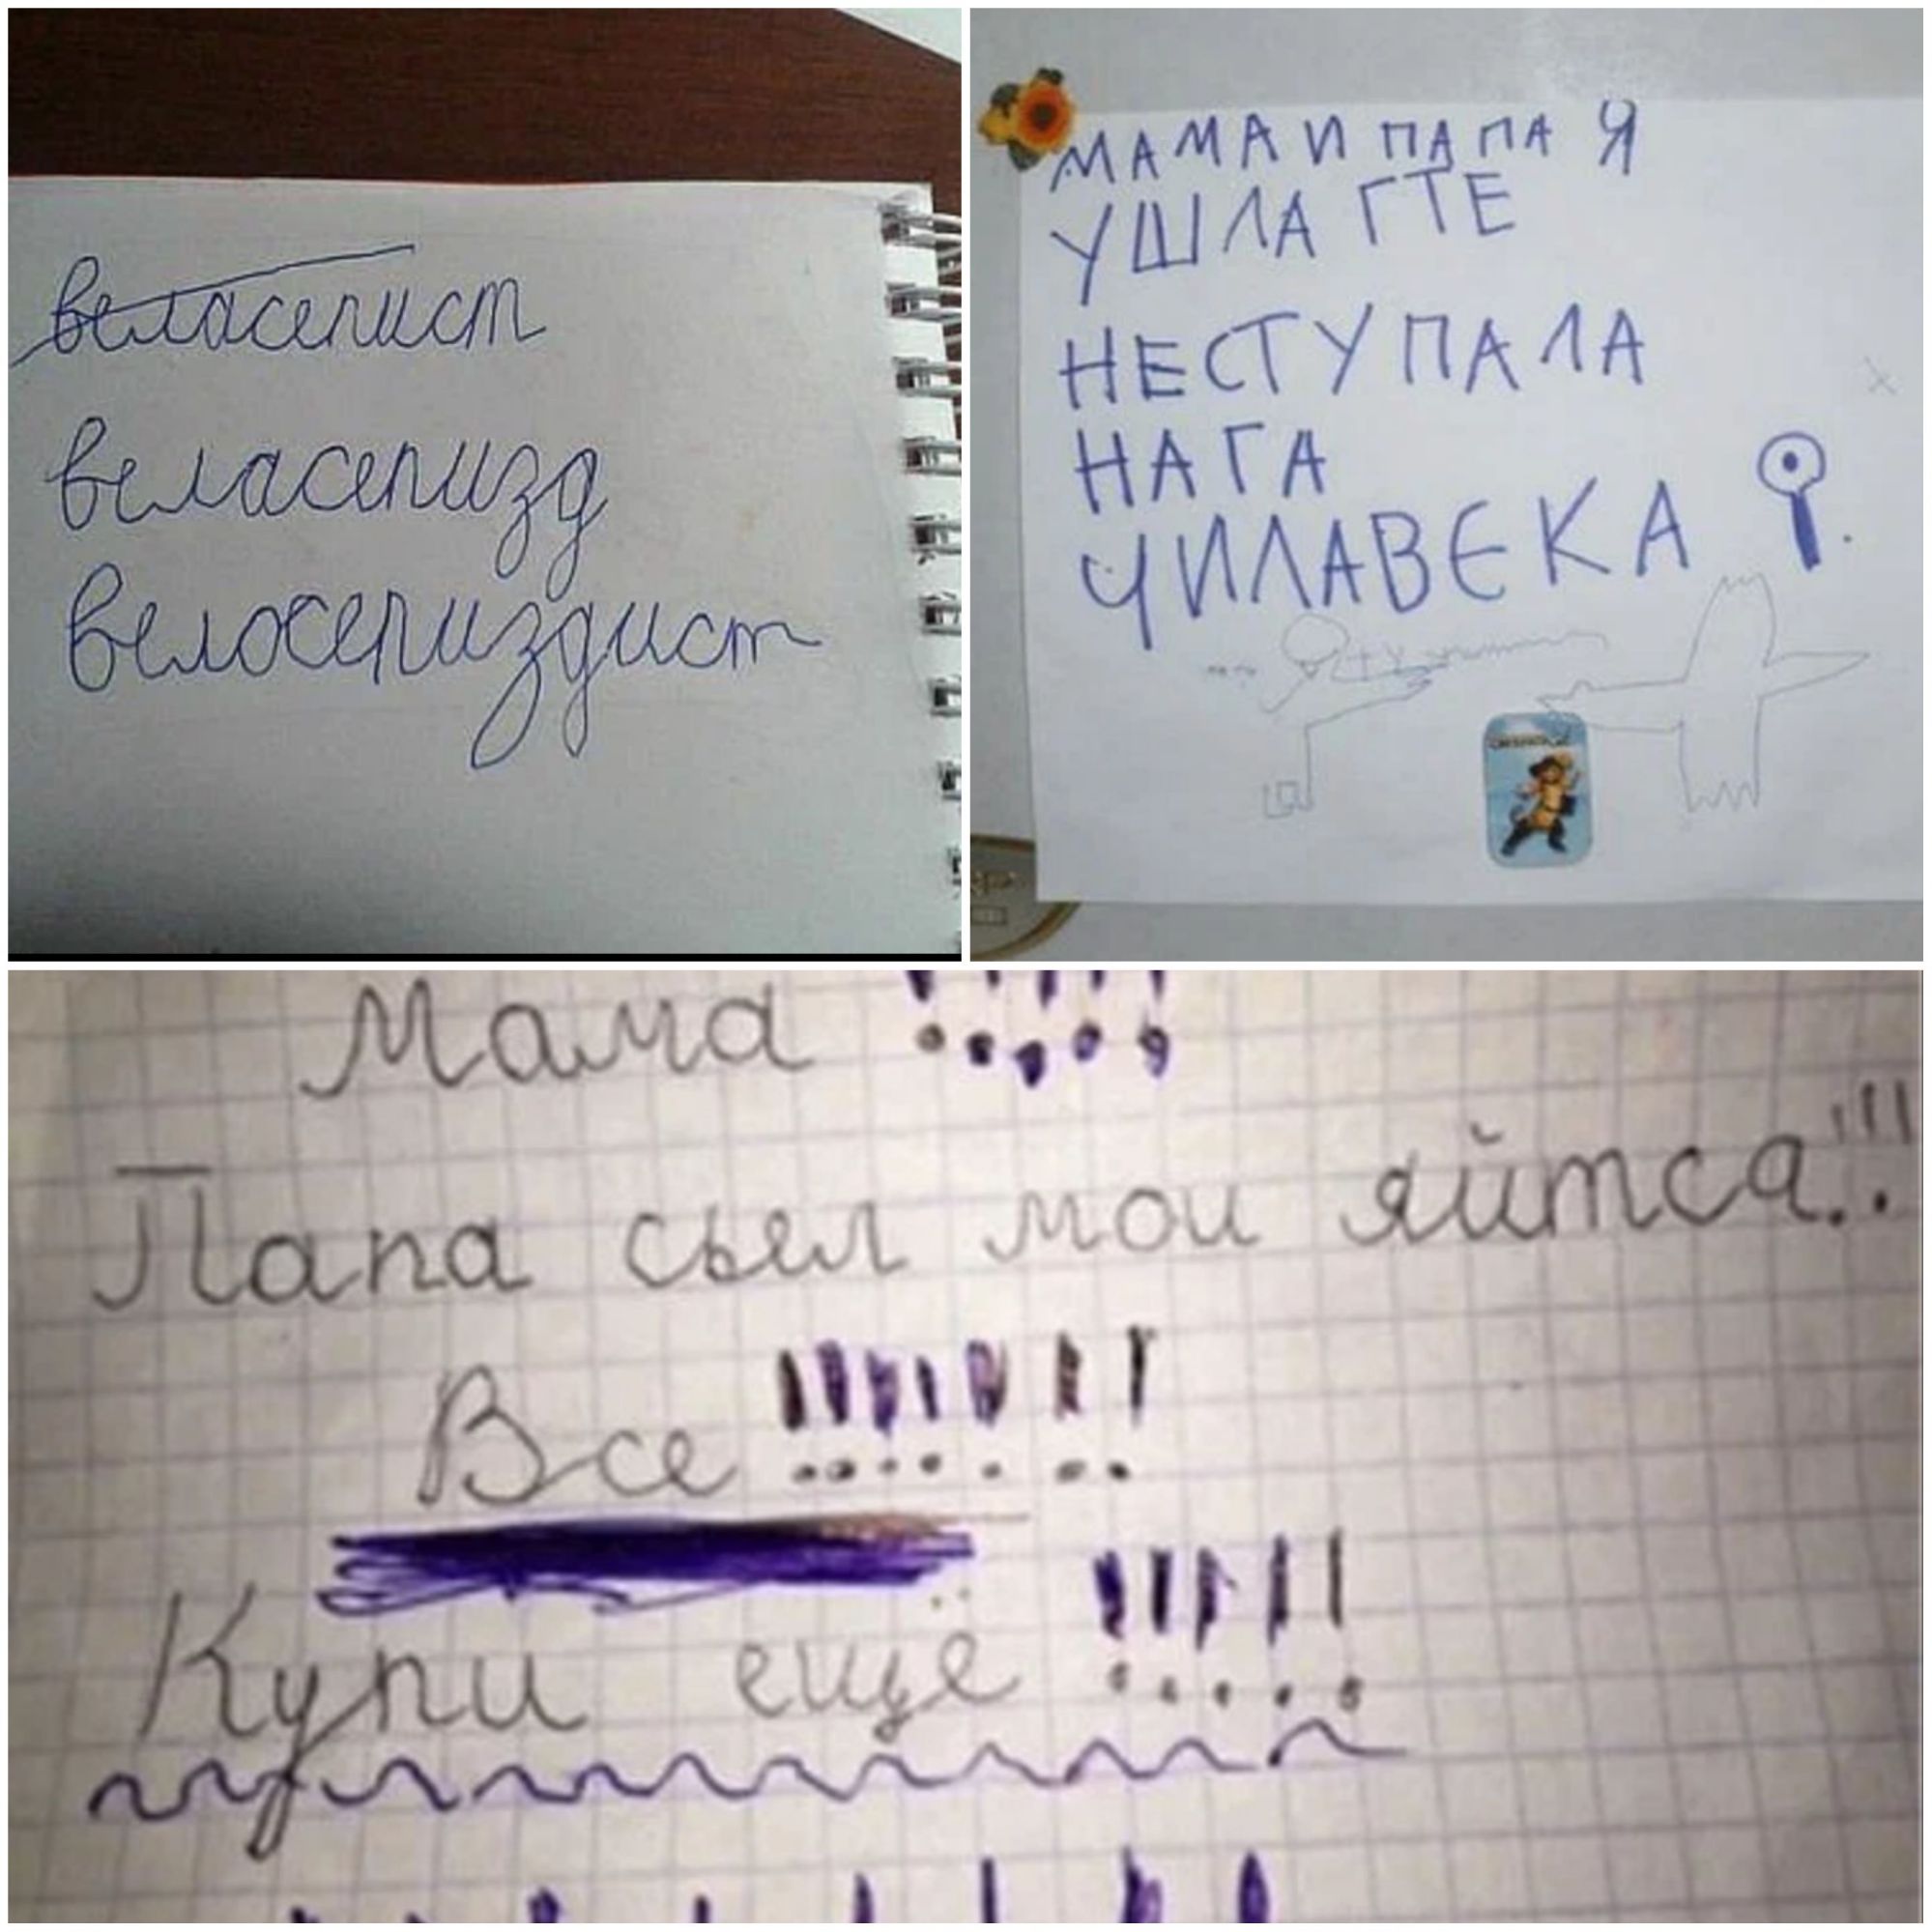 веласепист
веласепизд
велосепиздист
МАМА И ПАПА Я
УШЛА ГТЕ
НЕСТУПАЛА
НАГА
ЧИЛАВЕКА
Мама !!!!!
Папа сьел мои яйтса!!!
Все !!!!!!!
Купи еще !!!!!